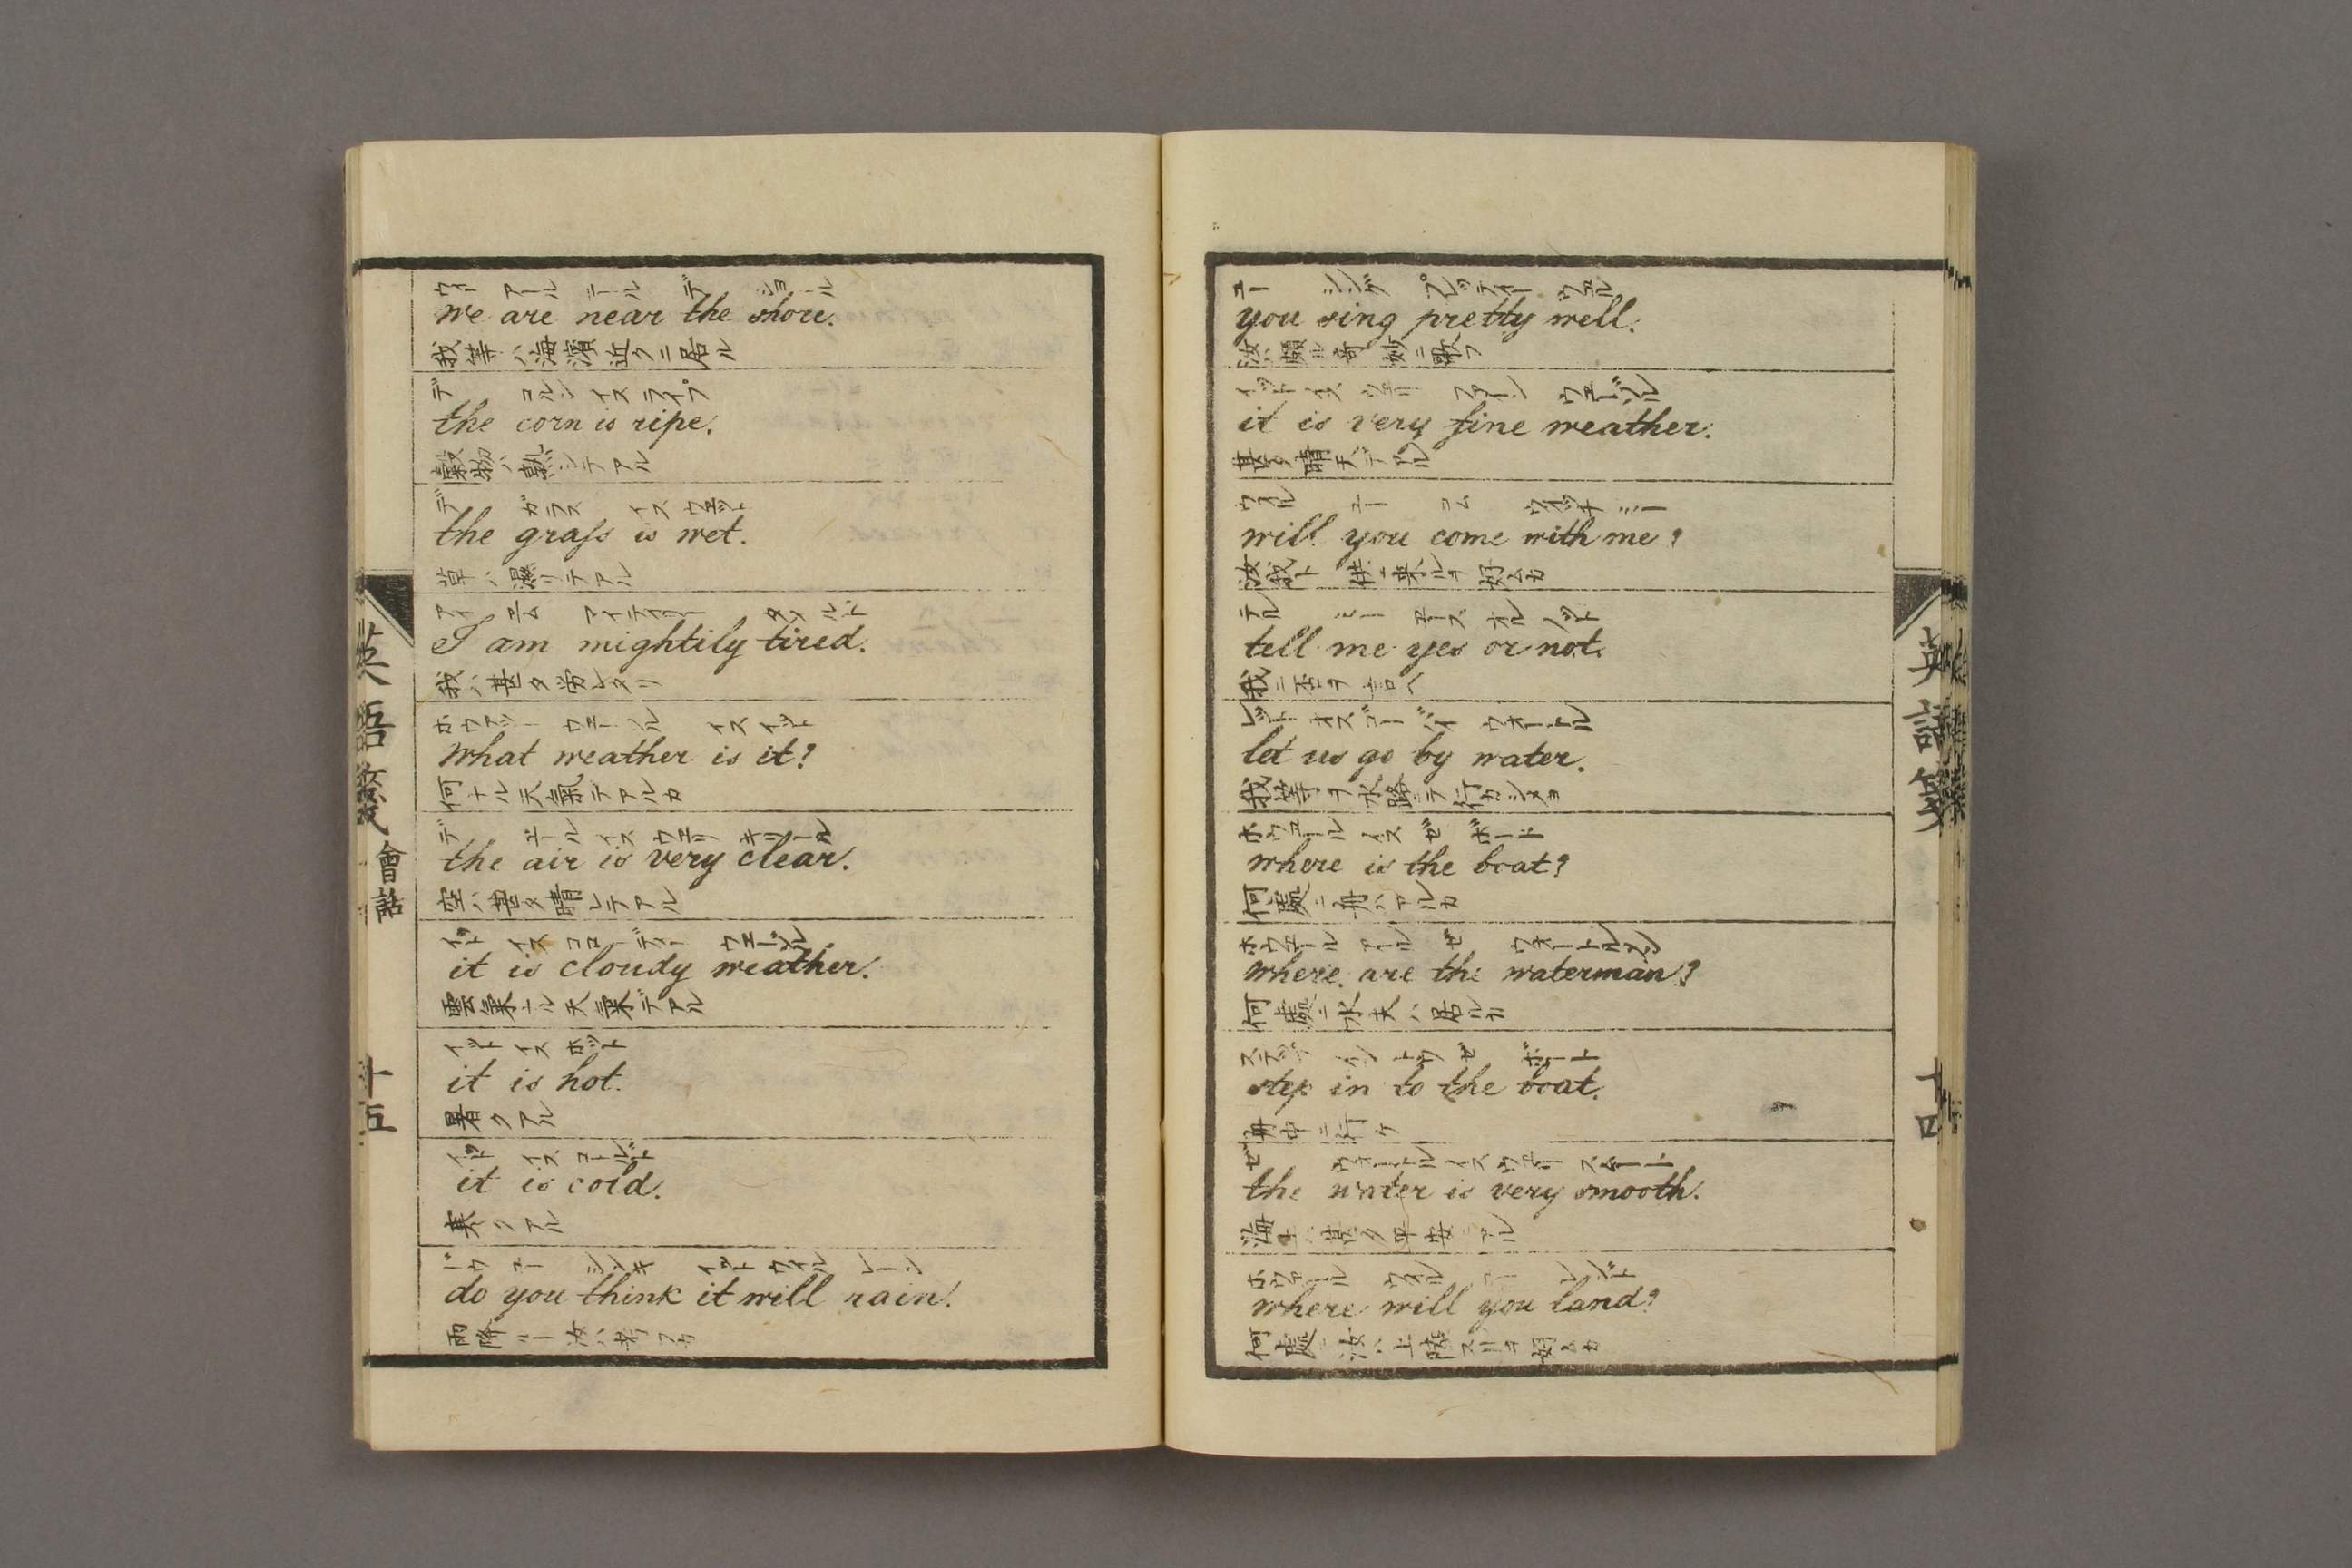 ユー シング プレッティー ウェル
you sing pretty well.
汝ハ頗ル奇妙ニ歌フ
イット イス ウェリー ファイン ウェードル
it is very fine weather.
甚タ晴天デアル
ウィル ユー コム ウィッチ ミー
will you come with me?
汝我ト供ニ来ルヲ好ムカ
テル ミー エース オル ノット
tell me yes or not.
我ニ否ヲ言へ
レット オス ゴー バイ ウォートル
let us go by water.
我等ヲ水路デ行カシメヨ
ホウェール イス ゼ ボート
where is the boat?
何處ニ舟ハアルカ
ホウェール アール ゼ ウォートルメン
where are the waterman?
何處ニ水夫ハ居ルカ
ステップ イン トウ ゼ ボート
step in to the boat.
舟中ニ行ケ
ゼ ウォートル イス ウェリー スムート
the water is very smooth.
海上ハ甚タ平安アル
ホウェール ウィル ユー レンド
where will you land?
何處ニ汝ハ上陸スルヲ好ムカ
英語箋
十四
ウィー アール ニール デ ショール
we are near the shore.
我等ハ海濱近クニ居ル
デ コルン イス ライプ
the corn is ripe.
穀物ハ熟シテアル
デ ガラス イス ウェット
the grass is wet.
草ハ濕リテアル
アイ エム マイティリー タイルド
I am mightily tired.
我ハ甚タ労レタリ
ホウアット ウェードル イス イット
what weather is it?
何ナル天氣デアルカ
デ エール イス ウェリ キリール
the air is very clear.
空ハ甚タ晴レテアル
イット イス コローディー ウェードル
it is cloudy weather.
雲氣ナル天氣デアル
イット イス ホット
it is hot.
暑クアル
イット イス コールド
it is cold.
寒クアル
ドウ ユー シンキ イット ウィル レーン
do you think it will rain.
雨降ルト汝ハ考フカ
英語箋 會話
十五